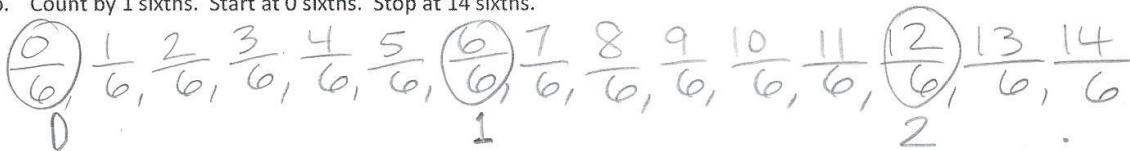 b. Count by 1 sixths. Start at 0 sixths. Stop at 14 sixths.
0/6, 1/6, 2/6, 3/6, 4/6, 5/6, 6/6, 7/6, 8/6, 9/6, 10/6, 11/6, 12/6, 13/6, 14/6
0 1 2